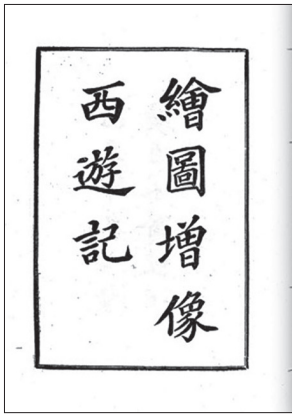 繪圖增像
西遊記